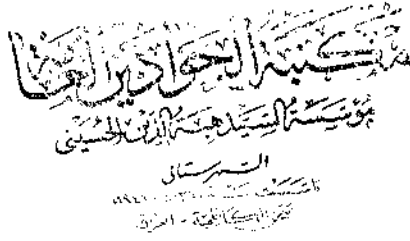 مكتبة الجوادين العامة
مؤسسة السيد هبة الدين الحسيني
الشهرستاني
تأسست سنة
العراق